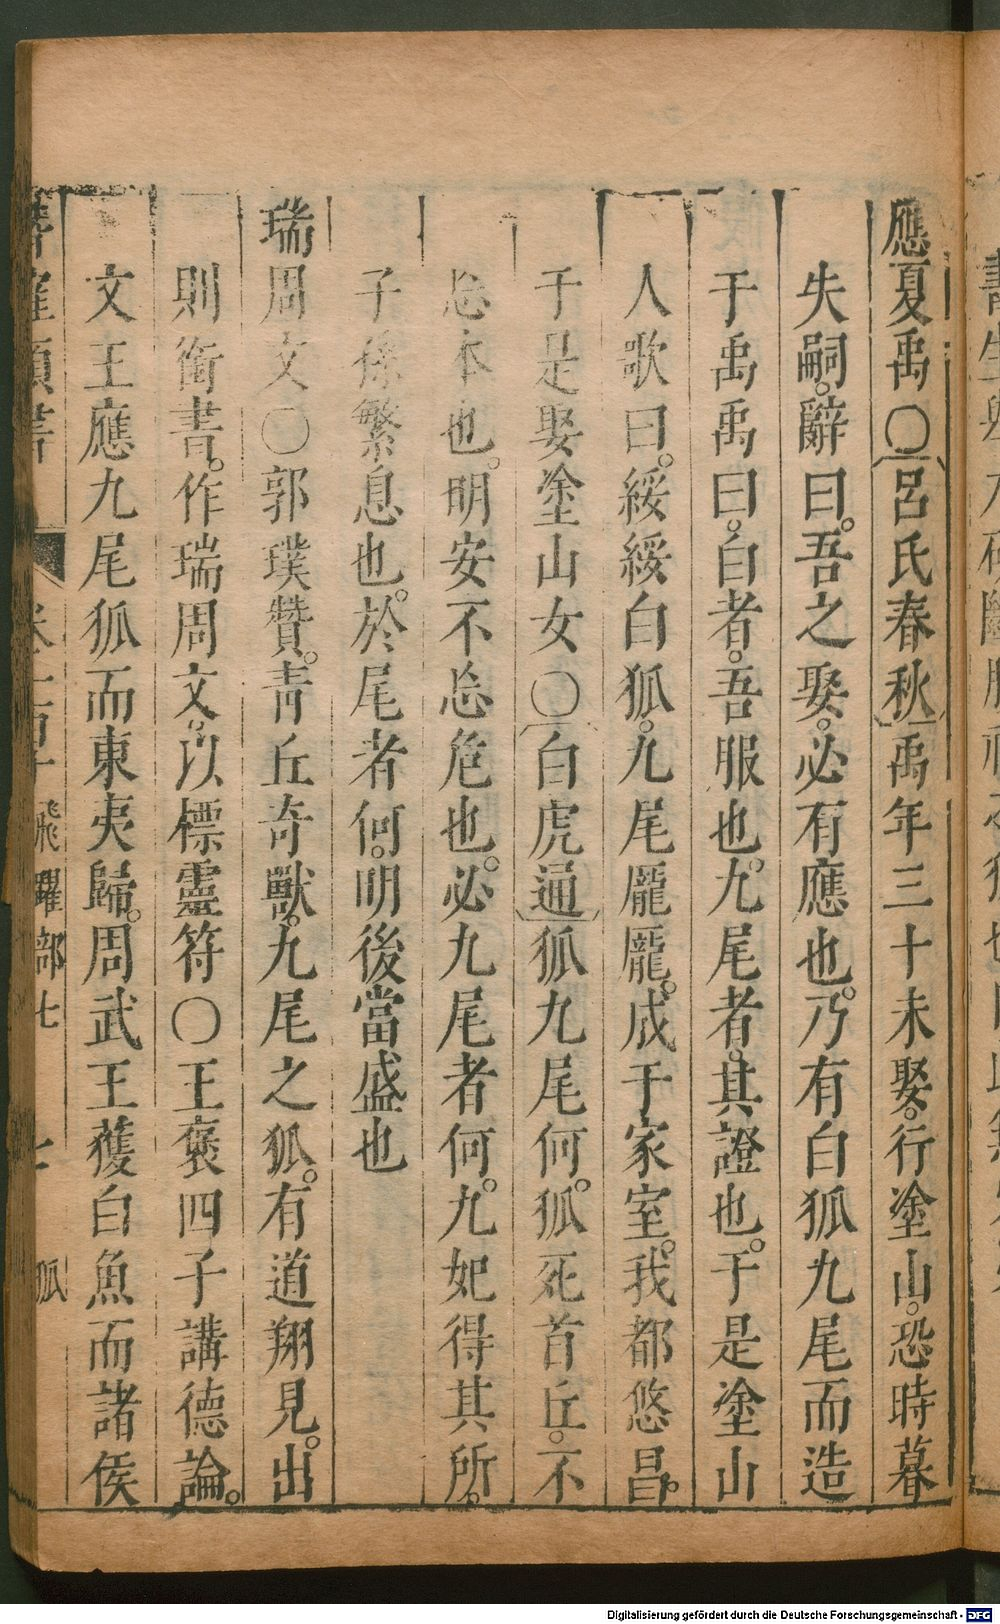 應夏禹○呂氏春秋禹年三十未娶。行塗山。恐時暮
失嗣。辭曰。吾之娶。必有應也。乃有白狐九尾而造
于禹禹曰。白者。吾服也。九尾者。其證也。于是塗山
人歌曰。綏綏白狐。九尾龎龎。成于家室。我都悠昌。
于是娶塗山女○白虎通狐九尾何。狐死首丘。不
忘本也。明安不忘危也。必九尾者何。九妃得其所。
子孫繁息也。於尾者何。明後當盛也
瑞周文○郭璞贊。青丘奇獸。九尾之狐。有道翔見。出
則銜書。作瑞周文。以標靈符○王褒四子講德論。
文王應九尾狐而東夷歸。周武王獲白魚而諸侯
飛躍部七 狐
Digitalisierung gefördert durch die Deutsche Forschungsgemeinschaft - DFG